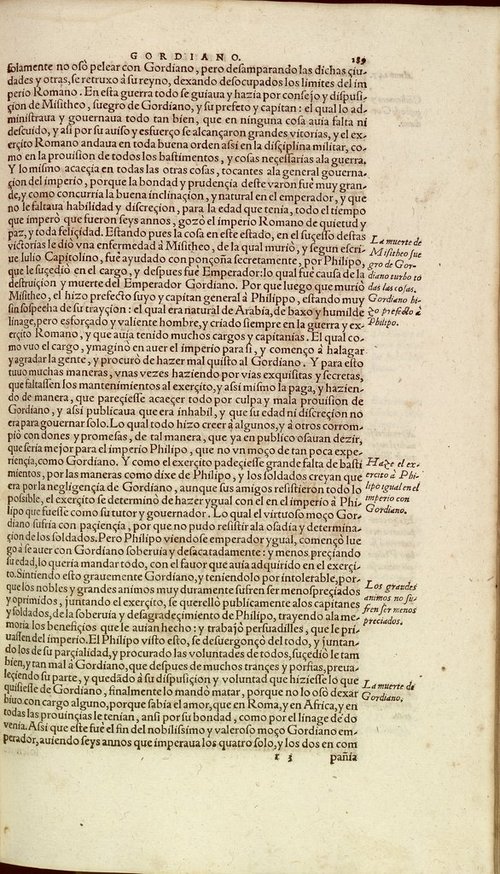 GORDIANO.
189
solamente no osò pelear con Gordiano, pero desamparando las dichas çiu-
dades y otras, se retruxo à su reyno, dexando desocupados los limites del im
perio Romano. En esta guerra todo se guiaua y hazia por consejo y dispusi-
çion de Misitheo, suegro de Gordiano, y su prefeto y capitan: el qual lo ad-
ministraua y gouernaua todo tan bien, que en ninguna cosa auia falta ni
descuido, y asi por su auiso y esfuerço se alcançaron grandes vitorias, y el ex-
erçito Romano andaua en toda buena orden assi en la disçiplina militar, co-
mo en la prouision de todos los bastimentos, y cosas neçessarias ala guerra.
Y lo mismo acaeçia en todas las otras cosas, tocantes ala general gouerna-
çion del imperio, porque la bondad y prudençia deste varon fuè muy gran-
de, y como concurria la buena inclinaçion, y natural en el emperador, y que
no le faltaua habilidad y discreçion, para la edad que tenia, todo el tiempo
que imperò que fueron seys annos, gozò el imperio Romano de quietud y
paz, y toda feliçidad. Estando pues la cosa en este estado, en el suçesso destas
victorias le diò vna enfermedad à Misitheo, de la qual muriò, y segun escri-
ue Iulio Capitolino, fuè ayudado con ponçoña secretamente, por Philipo,
que le suçediò en el cargo, y despues fuè Emperador: lo qual fuè causa de la
destruiçion y muerte del Emperador Gordiano. Por que luego que muriò
Misitheo, el hizo prefecto suyo y capitan general à Philippo, estando muy
sin sospecha de su trayçion: el qual era natural de Arabia, de baxo y humilde
linage, pero esforçado y valiente hombre, y criado siempre en la guerra y ex-
erçito Romano, y que auia tenido muchos cargos y capitanias. El qual co-
mo vuo el cargo, ymaginò en auer el imperio para si, y començò à halagar
y agradar la gente, y procurò de hazer mal quisto al Gordiano. Y para esto
tuuo muchas maneras, vnas vezes haziendo por vias exquisitas y secretas,
que faltassen los mantenimientos al exerçito, y asi mismo la paga, y hazien-
do de manera, que pareçiesse acaeçer todo por culpa y mala prouision de
Gordiano, y assi publicaua que era inhabil, y que su edad ni discreçion no
era para gouernar solo. Lo qual todo hizo creer à algunos, y à otros corrom-
piò con dones y promesas, de tal manera, que ya en publico osauan dezir,
que seria mejor para el imperio Philipo, que no vn moço de tan poca expe-
riençia, como Gordiano. Y como el exerçito padeçiesse grande falta de basti
mientos, por las maneras como dixe de Philipo, y los soldados creyan que
era por la negligençia de Gordiano, aunque sus amigos resistieron todo lo
possible, el exerçito se determinò de hazer ygual con el en el imperio à Phi-
lipo que fuesse como su tutor y gouernador. Lo qual el virtuoso moço Gor-
diano sufria con paçiençia, por que no pudo resistir ala osadia y determina-
çion de los soldados. Pero Philipo viendose emperador ygual, començò lue
go à se auer con Gordiano soberuia y desacatadamente: y menos preçiando
su edad, lo queria mandar todo, con el fauor que auia adquirido en el exerci-
to. Sintiendo esto grauemente Gordiano, y teniendolo por intolerable, por-
que los nobles y grandes animos muy duramente sufren ser menospreçiados
y oprimidos, juntando el exerçito, se querellò publicamente alos capitanes
y soldados, de la soberuia y desagradeçimiento de Philipo, trayendo ala me-
moria los benefiçios que le auian hecho: y trabajò persuadilles, que le pri-
uassen del imperio. El Philipo visto esto, se desuergonçò del todo, y juntan-
do los de su parçialidad, y procurado las voluntades de todos, suçediò le tam
bien, y tan mal à Gordiano, que despues de muchos trançes y porfias, preua-
leçiendo su parte, y quedãdo à su dispusiçion y voluntad que hiziesse lo que
quisiesse de Gordiano, finalmente lo mandò matar, porque no lo osò dexar
biuo con cargo alguno, porque sabia el amor, que en Roma, y en Africa, y en
todas las prouinçias le tenian, ansi por su bondad, como por el linage de do
venia. Assi que este fuè el fin del nobilissimo y valeroso moço Gordiano em-
perador, auiendo seys annos que imperaua los quatro solo, y los dos en com
r 3 pañia
La muerte de
Misitheo sue
gro de Gor-
diano turbò to
das las cosas.
Gordiano hi-
zo prefecto à
Philipo.
Haze el ex-
ercito à Phi-
lipo igual en el
imperio con
Gordiano.
Los grandes
animos no su-
fren ser menos
preciados.
La muerte de
Gordiano.